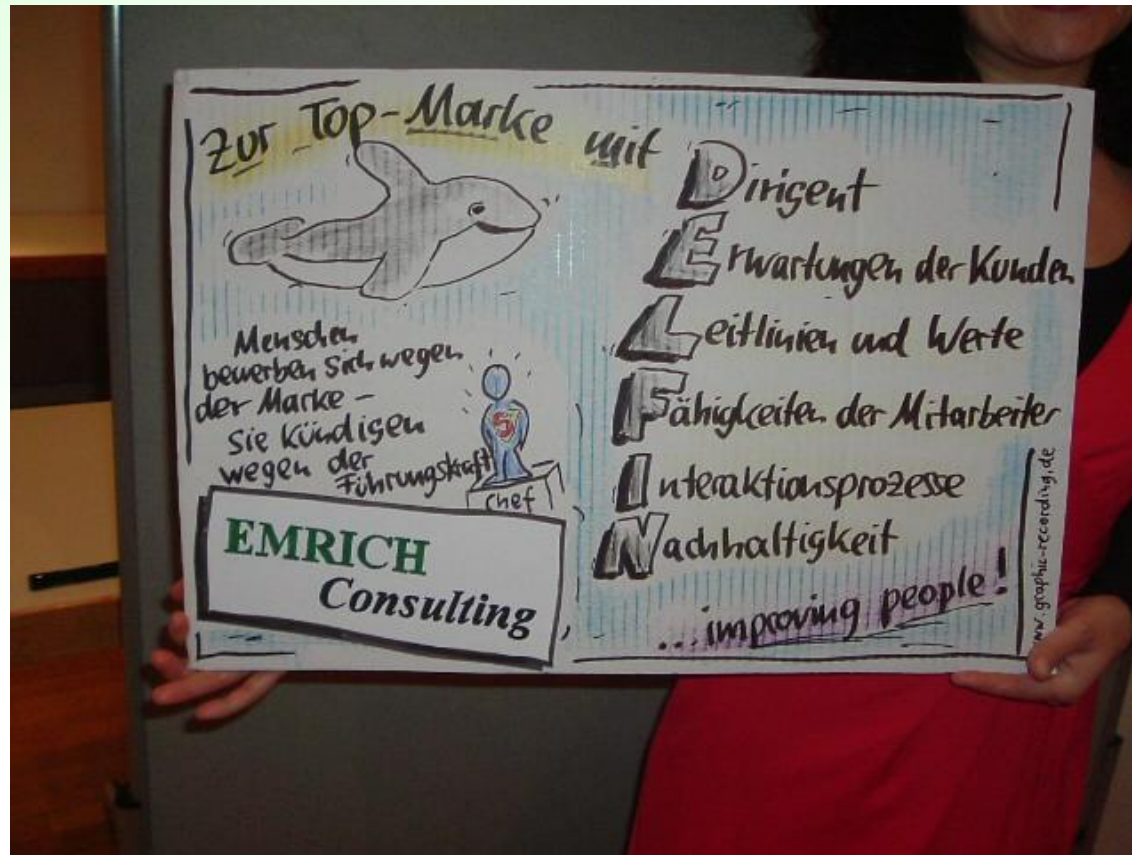 Zur Top-Marke mit
Dirigent
Erwartungen der Kunden
Leitlinien und Werte
Fähigkeiten der Mitarbeiter
Interaktionsprozesse
Nachhaltigkeit
...improving people!
Menschen
bewerben sich wegen
der Marke –
Sie kündigen
wegen der
Führungskraft
Chef
EMRICH
Consulting
www.graphic-recording.de